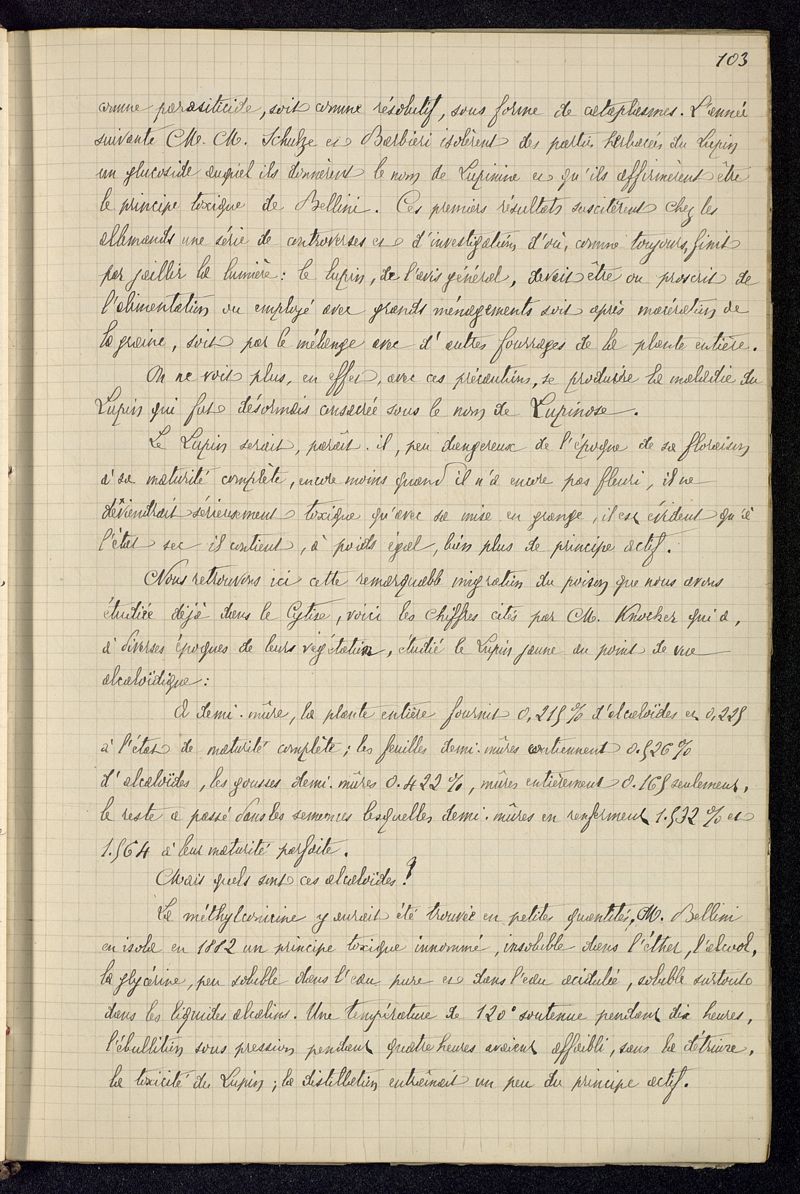 103
comme parasiticide, soit comme résolutif, sous forme de cataplasmes. L'année
suivante M. M. Schulze et Barbiéri isolèrent des parties herbacées du Lupin
un glucoside auquel ils donnèrent le nom de Lupinine et qu'ils affirmèrent être
le principe toxique de Bellini. Ces premiers résultats suscitèrent chez les
allemands une série de controverses et d'investigations d'où, comme toujours, finit
par jaillir la lumière : le lupin, de l'avis général, devait être ou proscrit de
l'alimentation ou employé avec grands ménagements soit après macération de
la graine, soit par le mélange avec d'autres fourrages de la plante entière.
On ne voit plus, en effet, avec ces précautions, se produire la maladie du
Lupin qui fut désormais consacrée sous le nom de Lupinose.
Le Lupin serait, paraît-il, peu dangereux de l'époque de sa floraison
à sa maturité complète, encore moins quand il n'a encore pas fleuri, il ne
deviendrait sérieusement toxique qu'avec sa mise en grange, il est évident qu'à
l'état sec il contient, à poids égal, bien plus de principe actif.
Nous retrouvons ici cette remarquable migration du poison que nous avons
étudiée déjà dans le Cytise, voici les chiffres cités par M. Knocker qui a,
à diverses époques de leurs végétation, étudié le Lupin jaune au point de vue
alcaloïdique :
A demi-mûre, la plante entière fournit 0.215% d'alcaloïdes et 0.225
à l'état de maturité complète ; les feuilles demi-mûres contiennent 0.526%
d'alcaloïdes, les gousses demi-mûres 0.422%, mûres entièrement 0.165 seulement,
le reste a passé dans les semences lesquelles demi-mûres en renferment 1.532% et
1.564 à leur maturité parfaite.
Mais quels sont ces alcaloïdes ?
La méthylconicine y aurait été trouvée en petites quantités, M. Bellini
en isola en 1882 un principe toxique innommé, insoluble dans l'éther, l'alcool,
la glycérine, peu soluble dans l'eau pure et dans l'eau acidulée, soluble surtout
dans les liquides alcalins. Une température de 120° soutenue pendant dix heures,
l'ébullition sous pression pendant quatre heures avaient affaibli, sans la détruire,
la toxicité du Lupin ; la distillation entraînait un peu du principe actif.